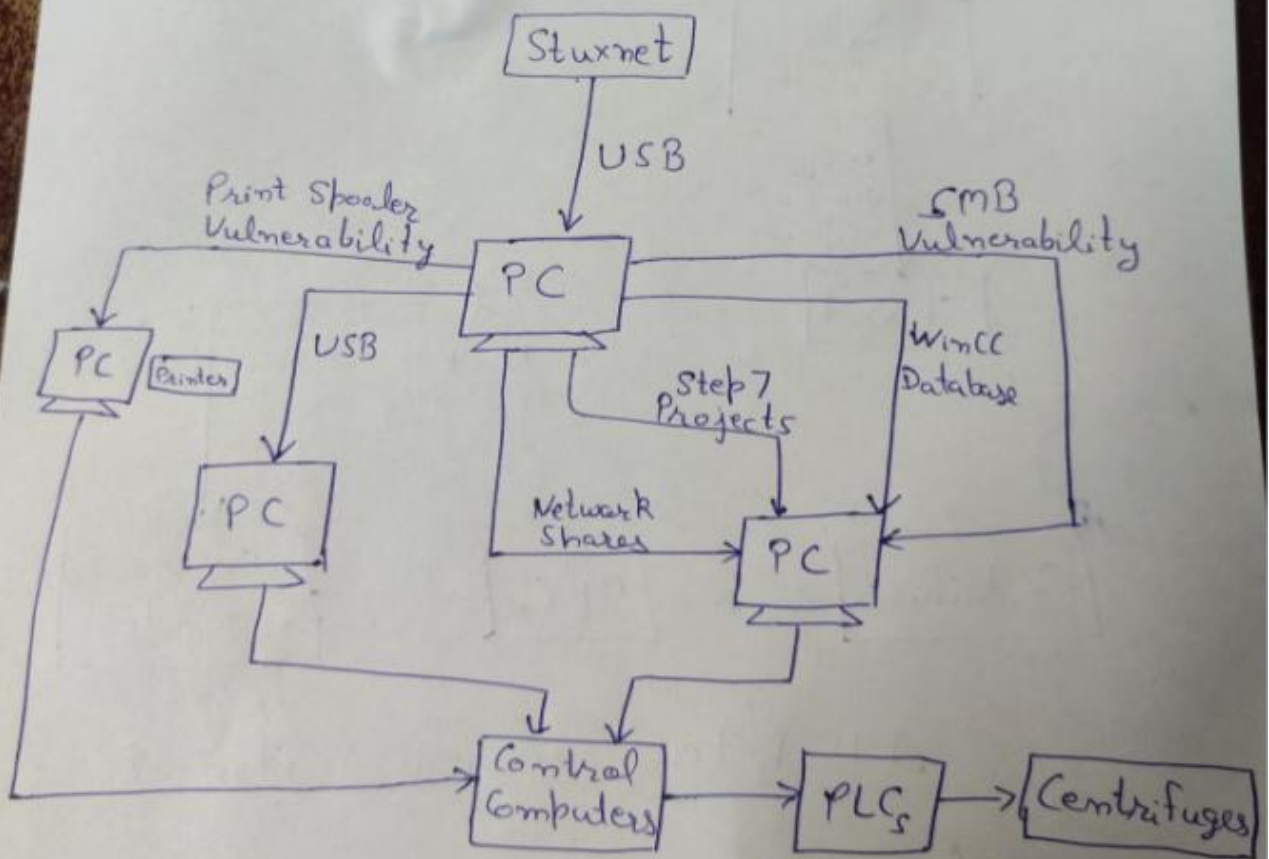 Stuxnet
USB
Print Spooler
Vulnerability
SMB
Vulnerability
PC
PC
Printer
USB
Step 7
Projects
WinCC
Database
PC
Network
Shares
PC
Control
Computers
PLCs
Centrifuges